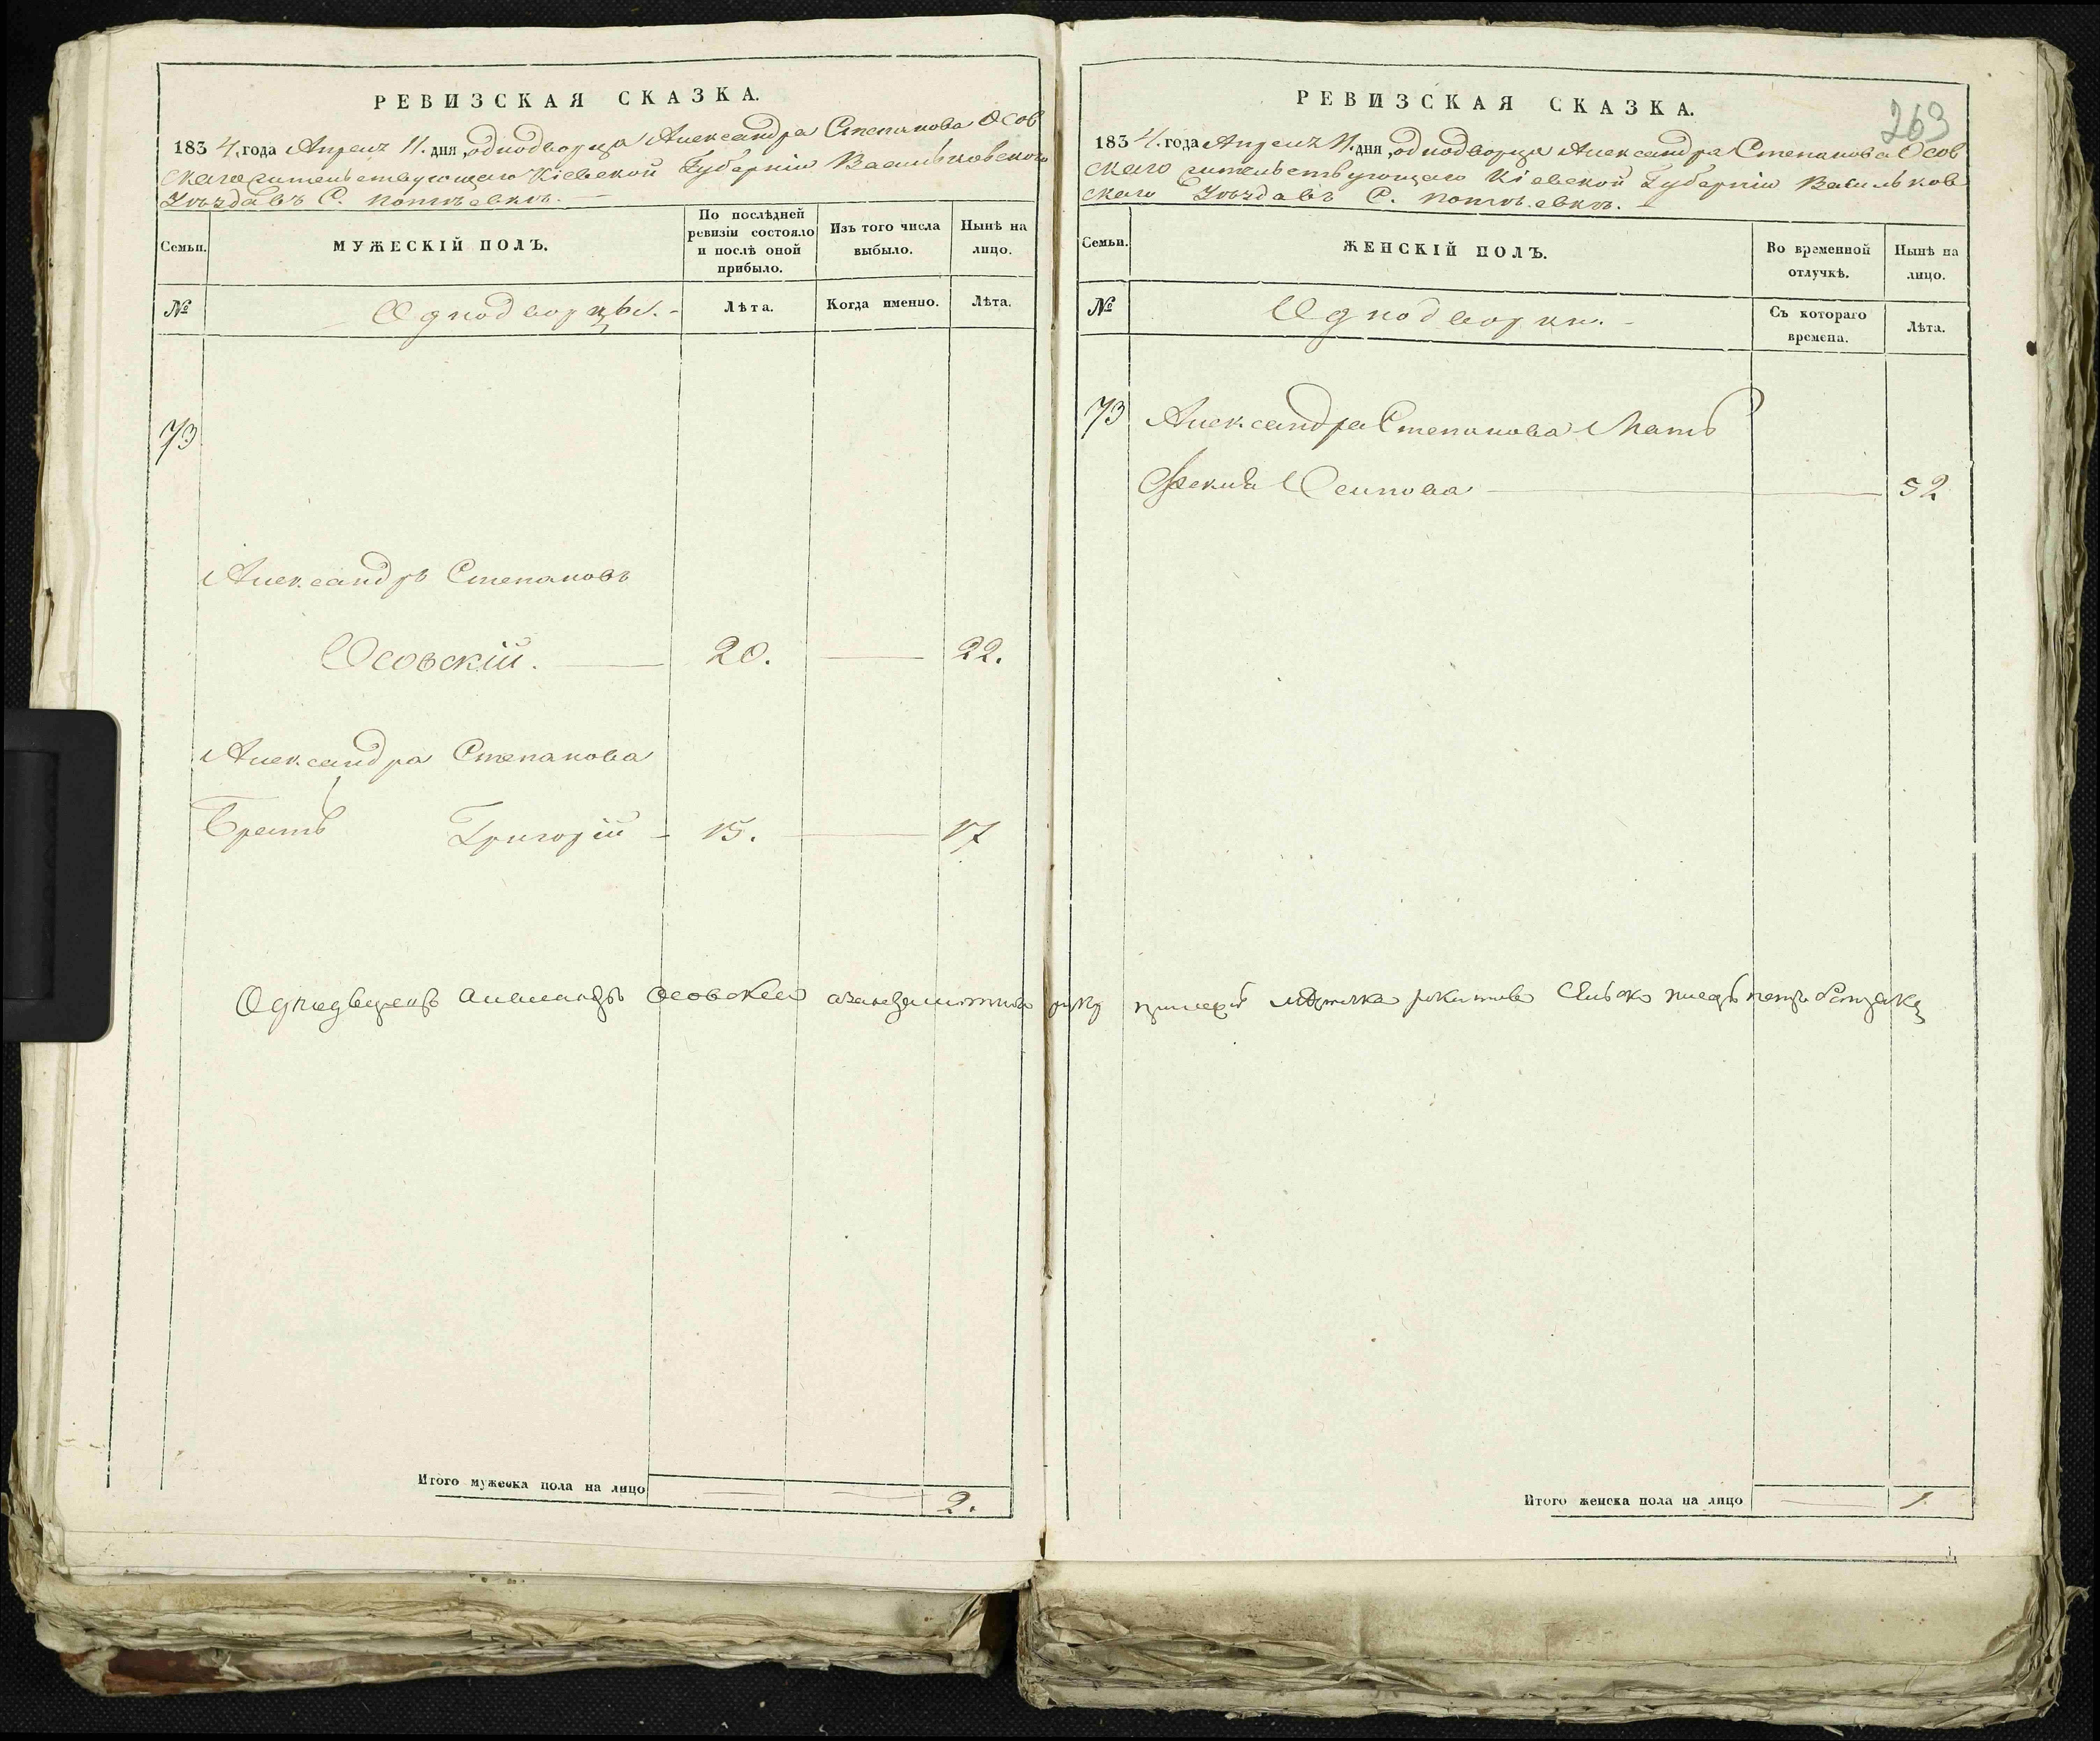 РЕВИЗСКАЯ СКАЗКА.
1834. года Апреля 11. дня, однодворца Александра Степанова Осов
скаго жительствующаго Кіевской Губерніи Васильковскаго
Уѣзда въ С.
Семьи.
МУЖЕСКІЙ ПОЛЪ.
По послѣдней ревизіи состояло и послѣ оной прибыло.
Изъ того числа выбыло.
Нынѣ на лицо.
№
Однодворцы.
Лѣта.
Когда именно.
Лѣта.
73
Александръ Степановъ
Осовскій. 20. 22.
Александра Степанова
Братъ Григорій 15. 17
Итого мужеска пола на лицо 2.
263
РЕВИЗСКАЯ СКАЗКА.
1834. года Апреля 11. дня, однодворца Александра Степанова Осов
скаго жительствующаго Кіевской Губерніи Васильков
скаго Уѣзда въ С.
Семьи.
ЖЕНСКІЙ ПОЛЪ.
Во временной отлучкѣ.
Нынѣ на лицо.
№
Однодворки.
Съ котораго времена.
Лѣта.
73 Александра Степанова Мать
Фекла Осипова 52
Однодворецъ Осовскей
Итого женска пола на лицо 1